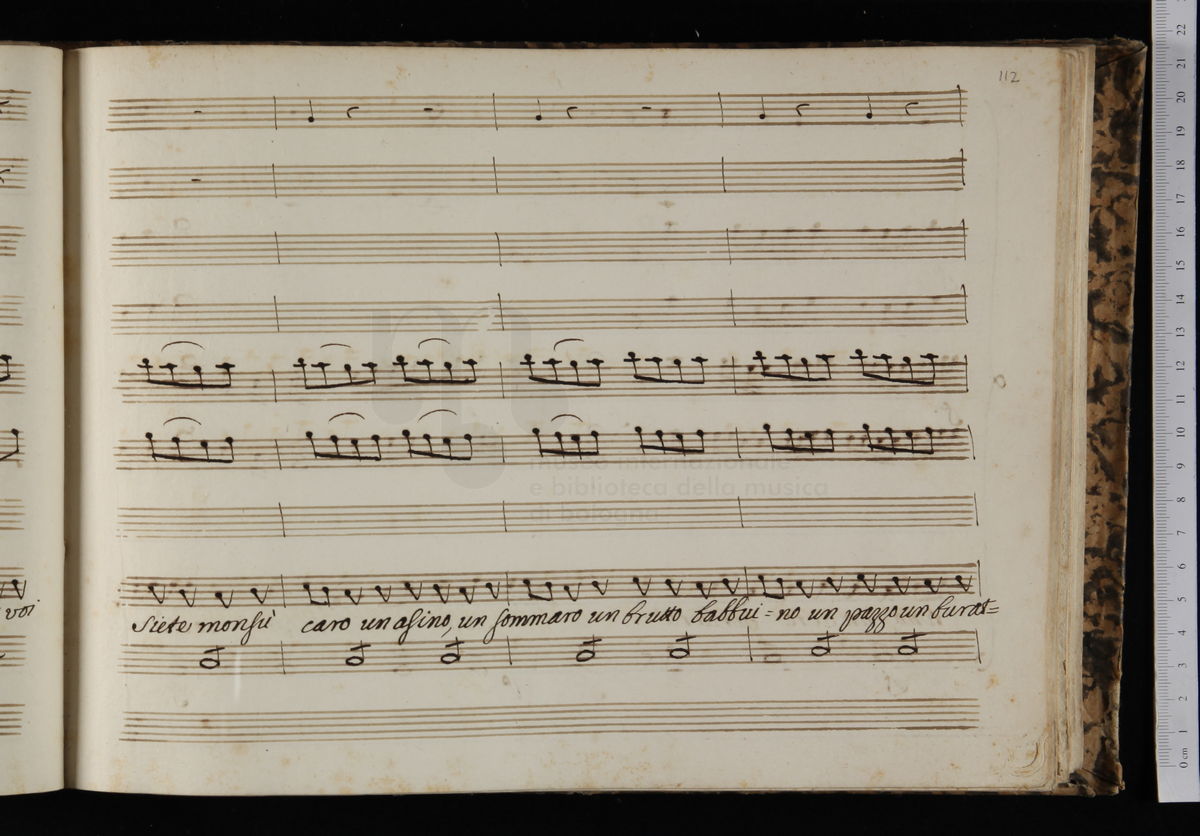 112
voi
Siete monsù caro un asino, un sommaro un brutto babbui=no un pazzo un burat=
museo internazionale
e biblioteca della musica
di bologna
0 cm 1 2 3 4 5 6 7 8 9 10 11 12 13 14 15 16 17 18 19 20 21 22